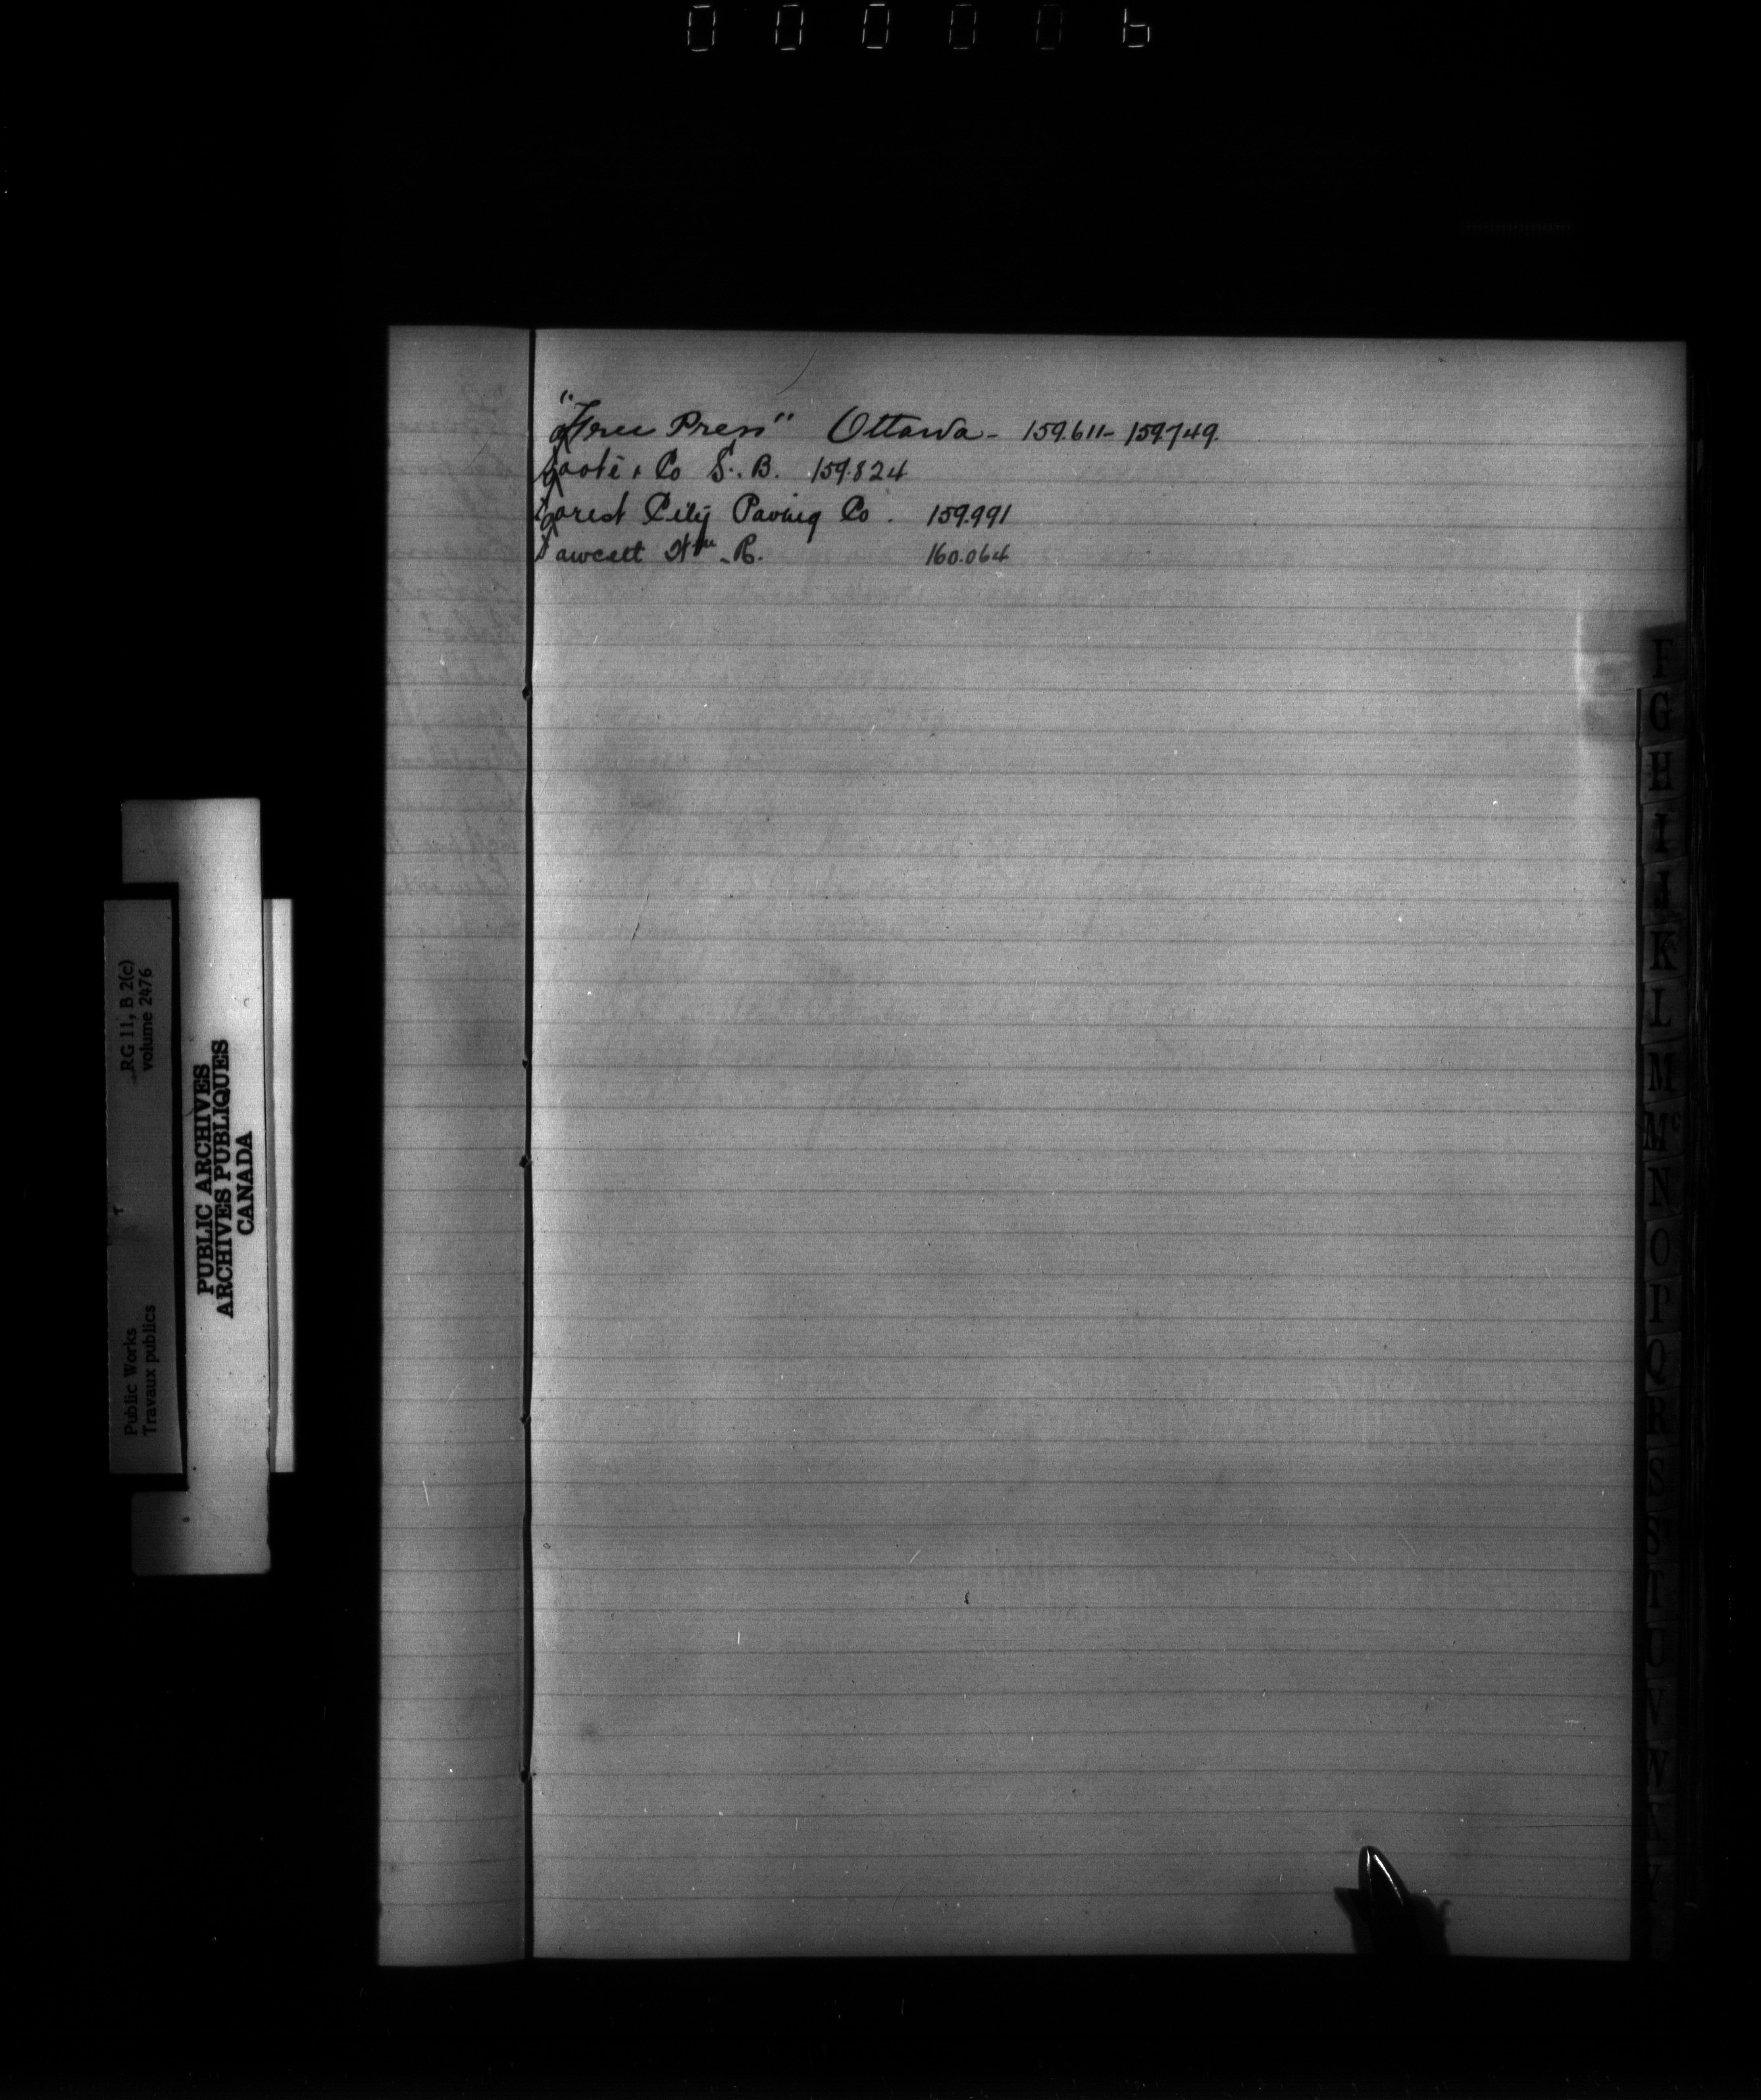 "Free Press" Ottawa - 159.611 - 159.749.
Foote & Co S. B. 159.824
Forest City Paving Co. 159.991
Fawcett Wm. R. 160.064
F
G
H
I
J
K
L
M
Mc
N
O
P
Q
R
S
S
T
U
V
W
RG 11, B 2(c)
volume 2476
Public Works
Travaux publics
PUBLIC ARCHIVES
ARCHIVES PUBLIQUES
CANADA